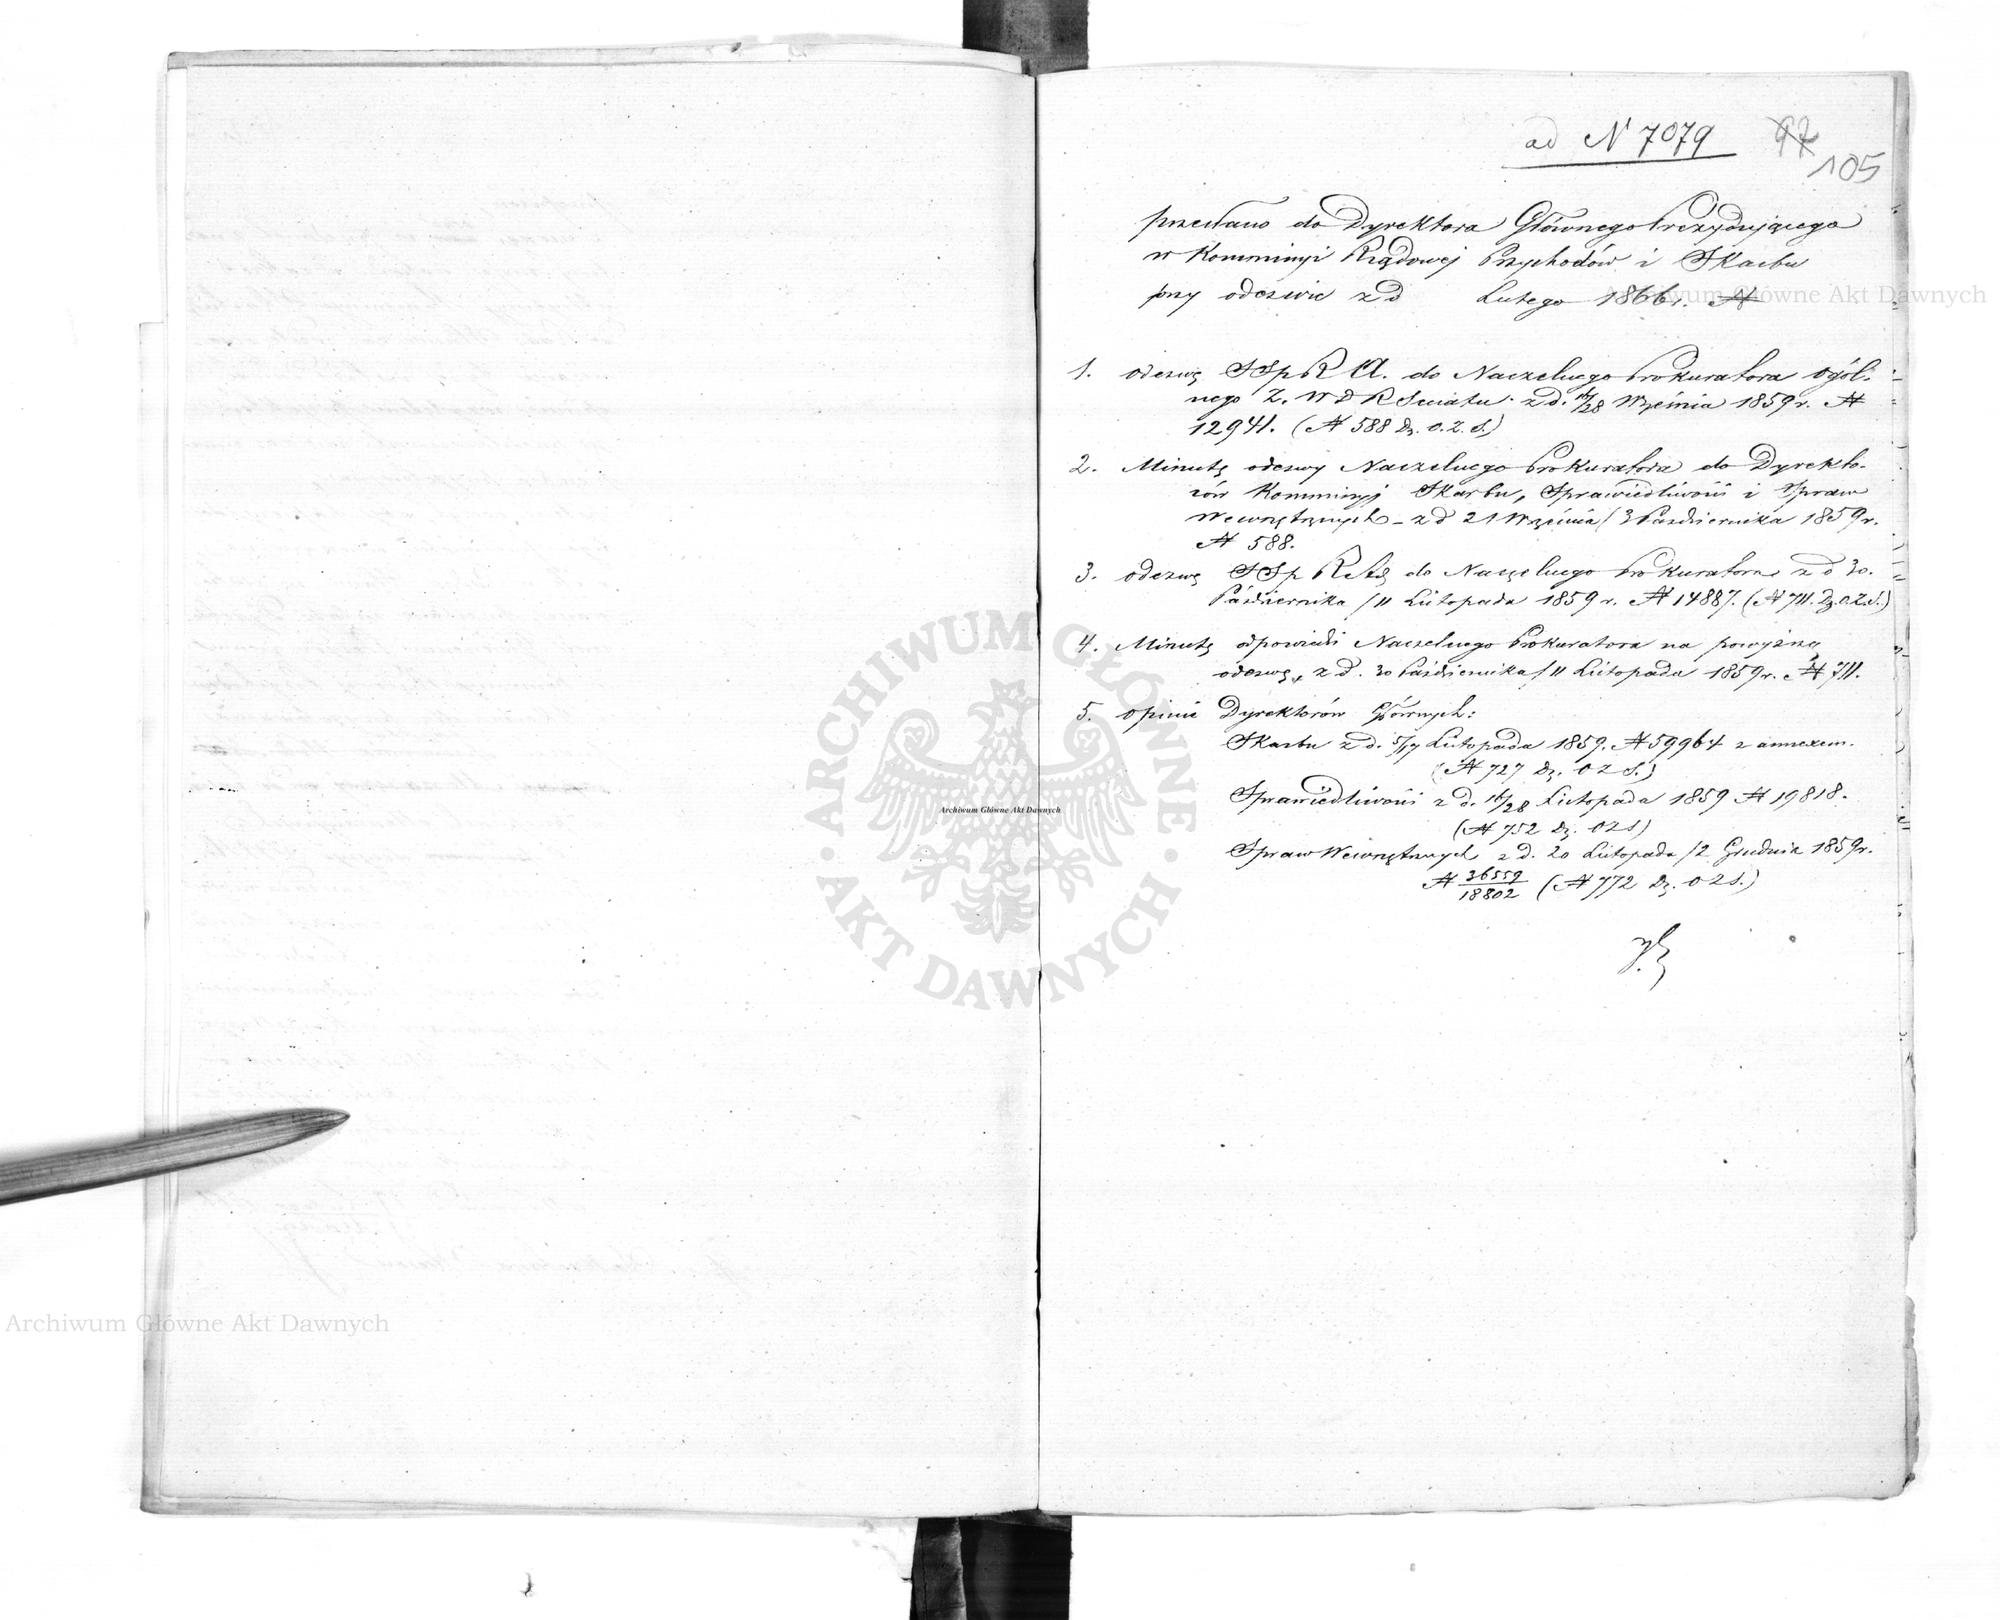 ad N 7079
97
105
przesłano do Dyrektora Głównego Prezydującego
w Kommissyi Rządowej Przychodów i Skarbu
przy odezwie z d Lutego 1866 r. N
1. odezwę SSp R A. do Naczelnego Prokuratora ogól-
nego Z. W D R Senatu z d. 16/28 Września 1859 r. N
12941. (N 588 Dz. O. Z. S.)
2. Minutę odezwy Naczelnego Prokuratora do Dyrekto-
rów Kommissyj Skarbu, Sprawiedliwości i Spraw
Wewnętrznych - z d 21 Września / 3 Października 1859 r.
N 588.
3. odezwę SSp R Ad do Naczelnego Prokuratora z d 30.
Października / 11 Listopada 1859 r. N 14887. (N 711. Dz. O. Z. S.)
4. Minutę odpowiedzi Naczelnego Prokuratora na powyższą
odezwę, z d. 30 Października / 11 Listopada 1859 r. N 711.
5. opinie Dyrektorów Głównych:
Skarbu z d. 5/17 Listopada 1859. N 59964 z annexem.
(N 727 Dz. O Z S.)
Sprawiedliwości z d. 16/28 Listopada 1859 N 19818.
(N 752 Dz. O Z S)
Spraw Wewnętrznych z d. 20 Listopada / 2 Grudnia 1859 r.
N 36559/18802 (N 772 Dz. O Z S.)
ARCHIWUM GŁÓWNE AKT DAWNYCH
Archiwum Główne Akt Dawnych
Archiwum Główne Akt Dawnych
Archiwum Główne Akt Dawnych